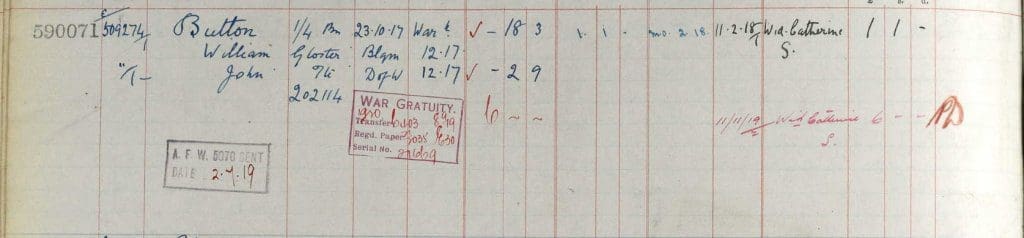 590071 509274/1 Button 1/4 Bn 23.10.17 War t ✓ - 18 3 1. 1. mo. 2. 18. 11.2.18 Wid. Catherine 1 1 -
William Gloster Blgm 12.17 S.
"T- John D of W 12.17 ✓ - 2 9
202114
WAR GRATUITY.
6 - - 11/11/19 Wid Catherine 6 - -
Transfer
Regd. Paper
S.
Serial No.
A. F. W. 5070 SENT
DATE 2.7.19